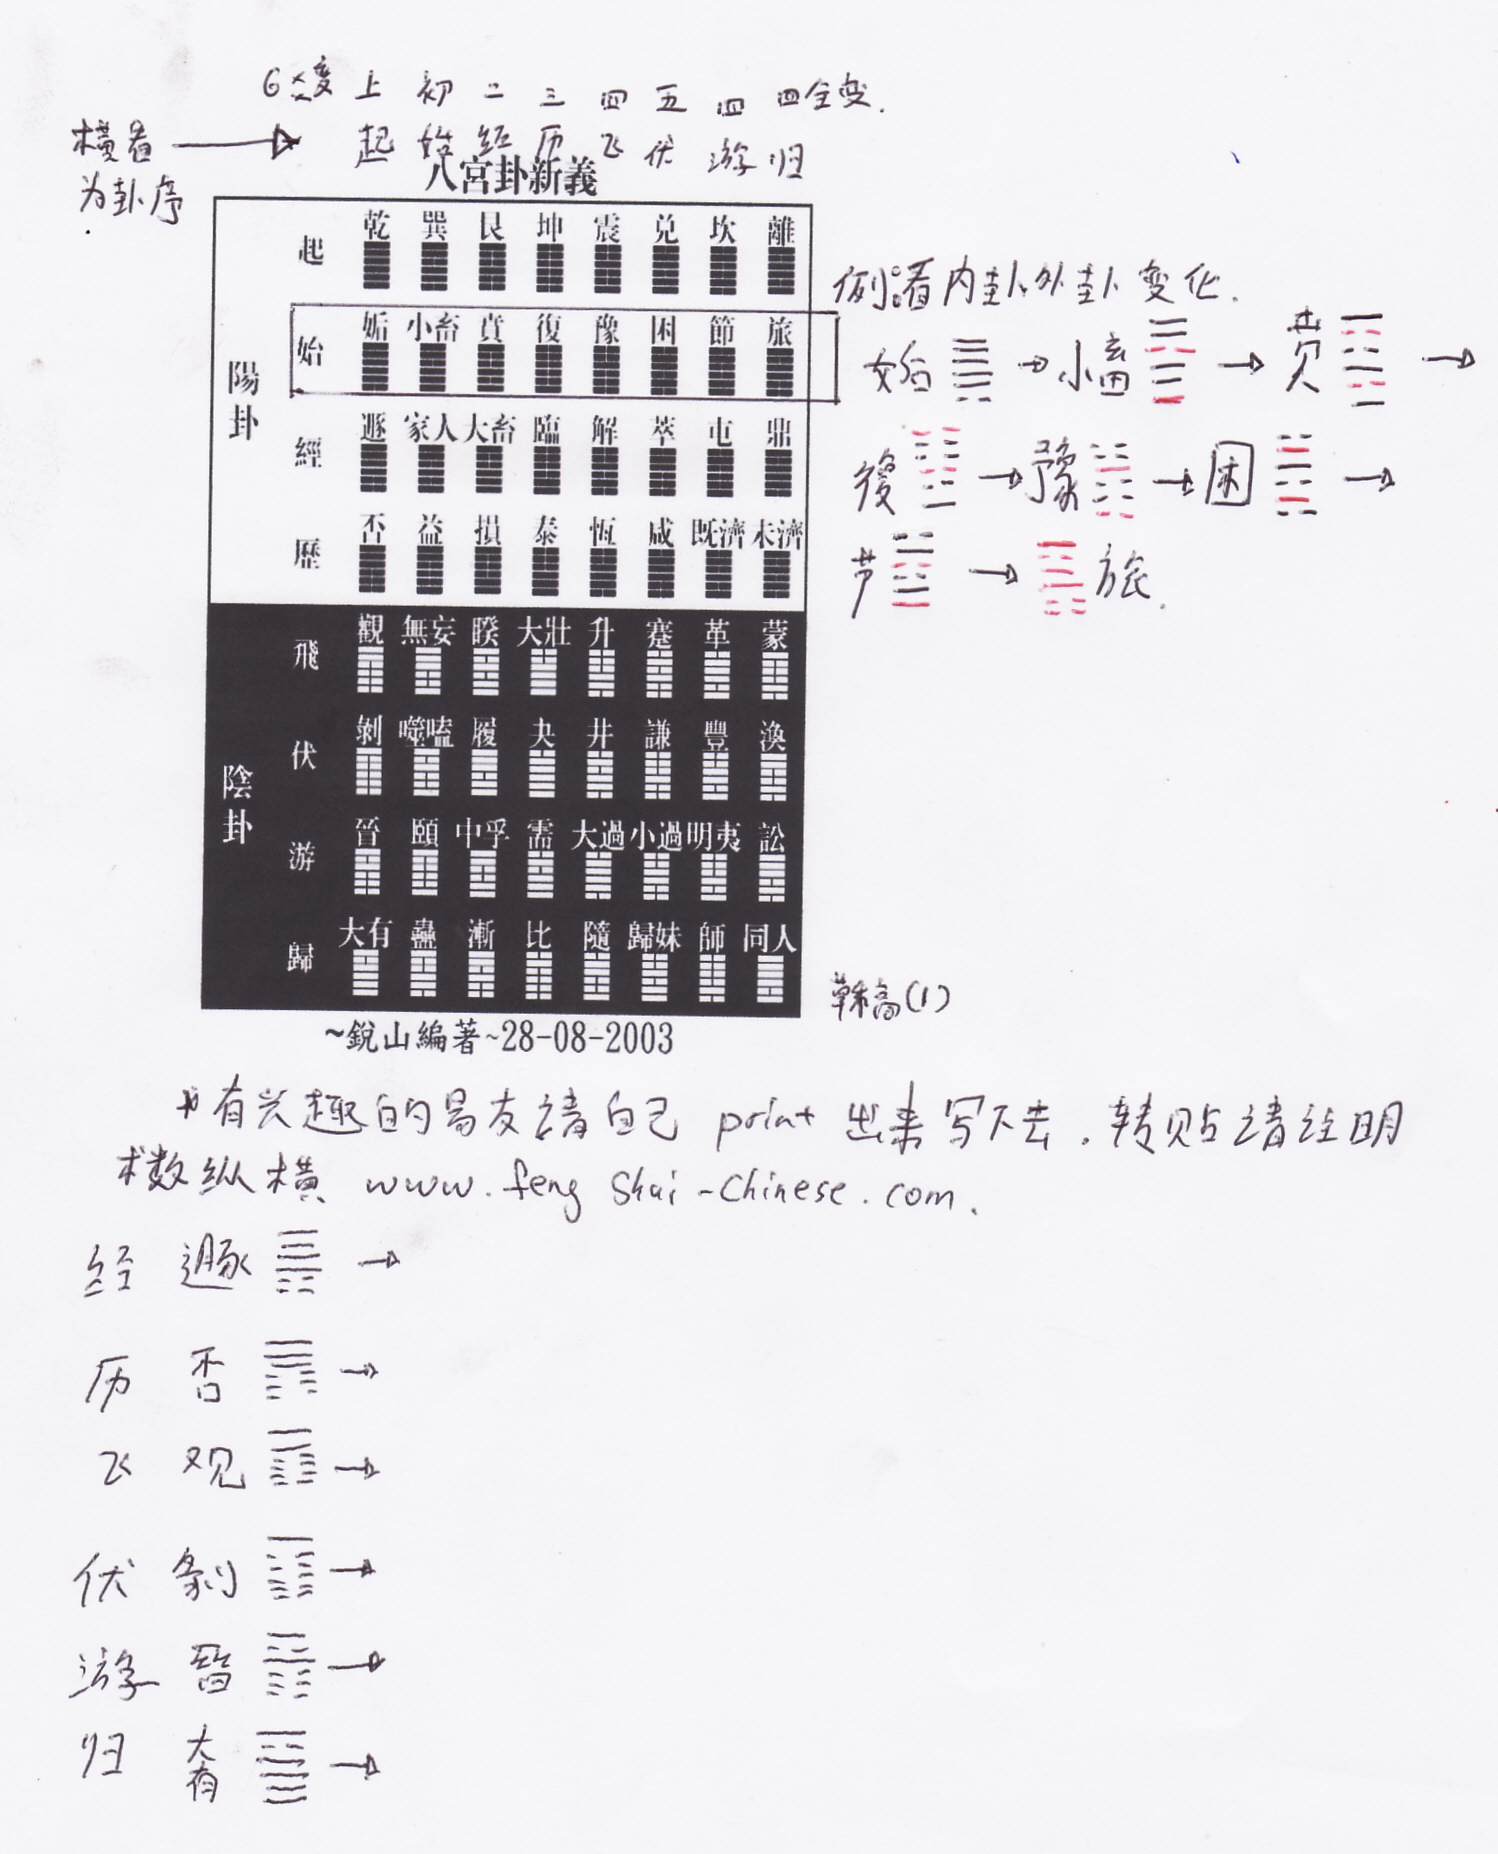 6爻变 上 初 二 三 四 五 四 四全变.
横看 → 起 始 经 历 飞 伏 游 归
为卦序
八宮卦新義
陽卦
起 乾 巽 艮 坤 震 兑 坎 離
始 姤 小畜 賁 復 豫 困 節 旅
經 遯 家人 大畜 臨 解 萃 屯 鼎
歷 否 益 損 泰 恆 咸 既濟 未濟
陰卦
飛 觀 無妄 睽 大壯 升 蹇 革 蒙
伏 剝 噬嗑 履 夬 井 謙 豐 渙
游 晉 頤 中孚 需 大過 小過 明夷 訟
歸 大有 蠱 漸 比 隨 歸妹 師 同人
~銳山編著~28-08-2003
例:看内卦外卦变化.
姤 → 小畜 → 贲 →
復 → 豫 → 困 →
节 → 旅.
草稿(1)
有兴趣的易友请自己 print 出来写下去.转贴请注明
术数纵横 www.fengshui-chinese.com.
经 遯 →
历 否 →
飞 观 →
伏 剝 →
游 晋 →
归 大有 →